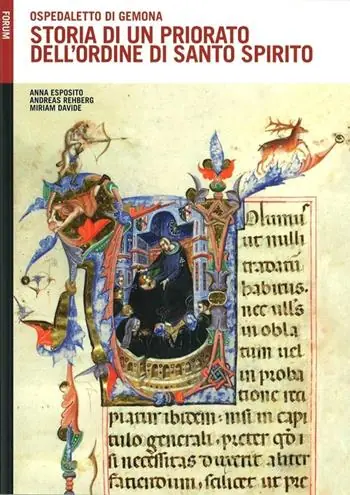 FORUM
OSPEDALETTO DI GEMONA
STORIA DI UN PRIORATO
DELL'ORDINE DI SANTO SPIRITO
ANNA ESPOSITO
ANDREAS REHBERG
MIRIAM DAVIDE
Uolumus
ut nulli
tradatur
habitus.
nec ulls
in obla
tum uel
in proba
tione reci
piatur ibidem. nisi in capi
tulo generali. preter qd i
si necessitas diuerit aliter
faciendum. scilicet ut pre